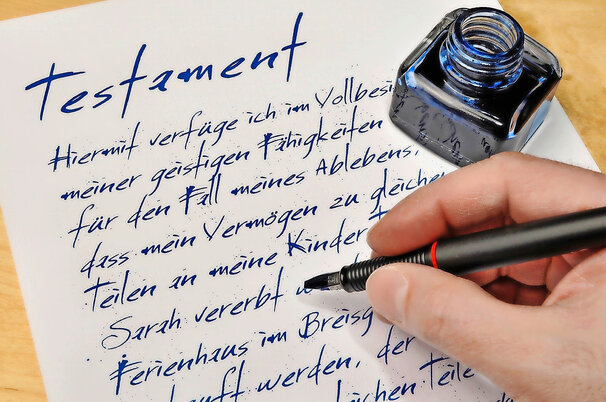 Testament
Hiermit verfüge ich im Vollbesi
meiner geistigen Fähigkeiten
für den Fall meines Ablebens,
dass mein Vermögen zu gleichen
Teilen an meine Kinder T
Sarah vererbt w
Ferienhaus im Breisg
werden, der
lichen Teile